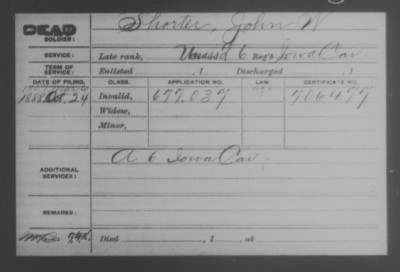 DEAD Shorter, John W
SOLDIER:
SERVICE: Late rank, Unas'd 6 Reg't Iowa Cav.
TERM OF SERVICE: Enlisted , 1 Discharged , 1
DATE OF FILING. CLASS. APPLICATION NO. LAW. CERTIFICATE NO.
1888 Oct. 24 Invalid, 677.037 706477
Widow,
Minor,
ADDITIONAL SERVICES: A 6 Iowa Cav.
REMARKS:
Died , 1 , at